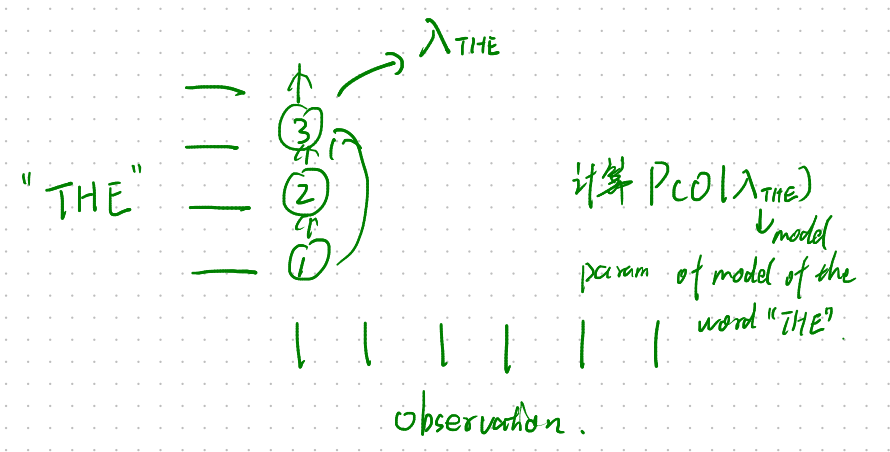 λ THE
3
2
1
"THE"
计算 P(O|λTHE)
model
param of model of the
word "THE".
observation.